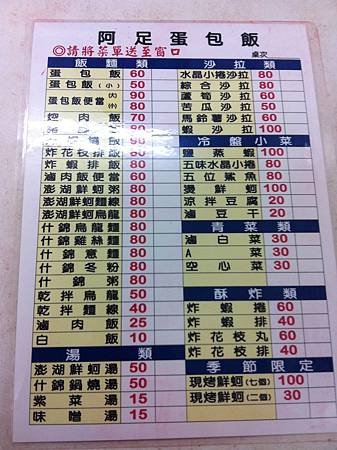 阿足蛋包飯
◎請將菜單送至窗口
桌次
飯麵類
蛋包飯 60
蛋包飯(小) 50
蛋包飯便當 (大) 90
(小) 80
焢肉飯 70
飯 80
飯 90
炸花枝排飯 60
炸蝦排飯 60
滷肉飯便當 60
澎湖鮮蚵粥 80
澎湖鮮蚵麵線 80
澎湖鮮蚵烏龍 80
什錦烏龍麵 80
什錦雞絲麵 80
什錦意麵 80
什錦冬粉 80
什錦粥 80
乾拌烏龍 50
乾拌麵線 40
滷肉飯 25
白飯 10
湯類
澎湖鮮蚵湯 50
什錦鍋燒湯 50
紫菜湯 15
味噌湯 15
沙拉類
水晶小捲沙拉 80
綜合沙拉 80
蘆筍沙拉 60
苦瓜沙拉 50
馬鈴薯沙拉 60
蝦沙拉 80
冷盤小菜
鹽蒸蝦 100
五味水晶小捲 80
五位鯊魚 80
燙鮮蚵 100
涼拌豆腐 20
滷豆干 20
青菜類
滷白菜 30
A菜 30
空心菜 30
酥炸類
炸蝦捲 60
炸蝦排 40
炸花枝丸 60
炸花枝排 40
季節限定
現烤鮮蚵(七個) 100
現烤鮮蚵(二個) 30